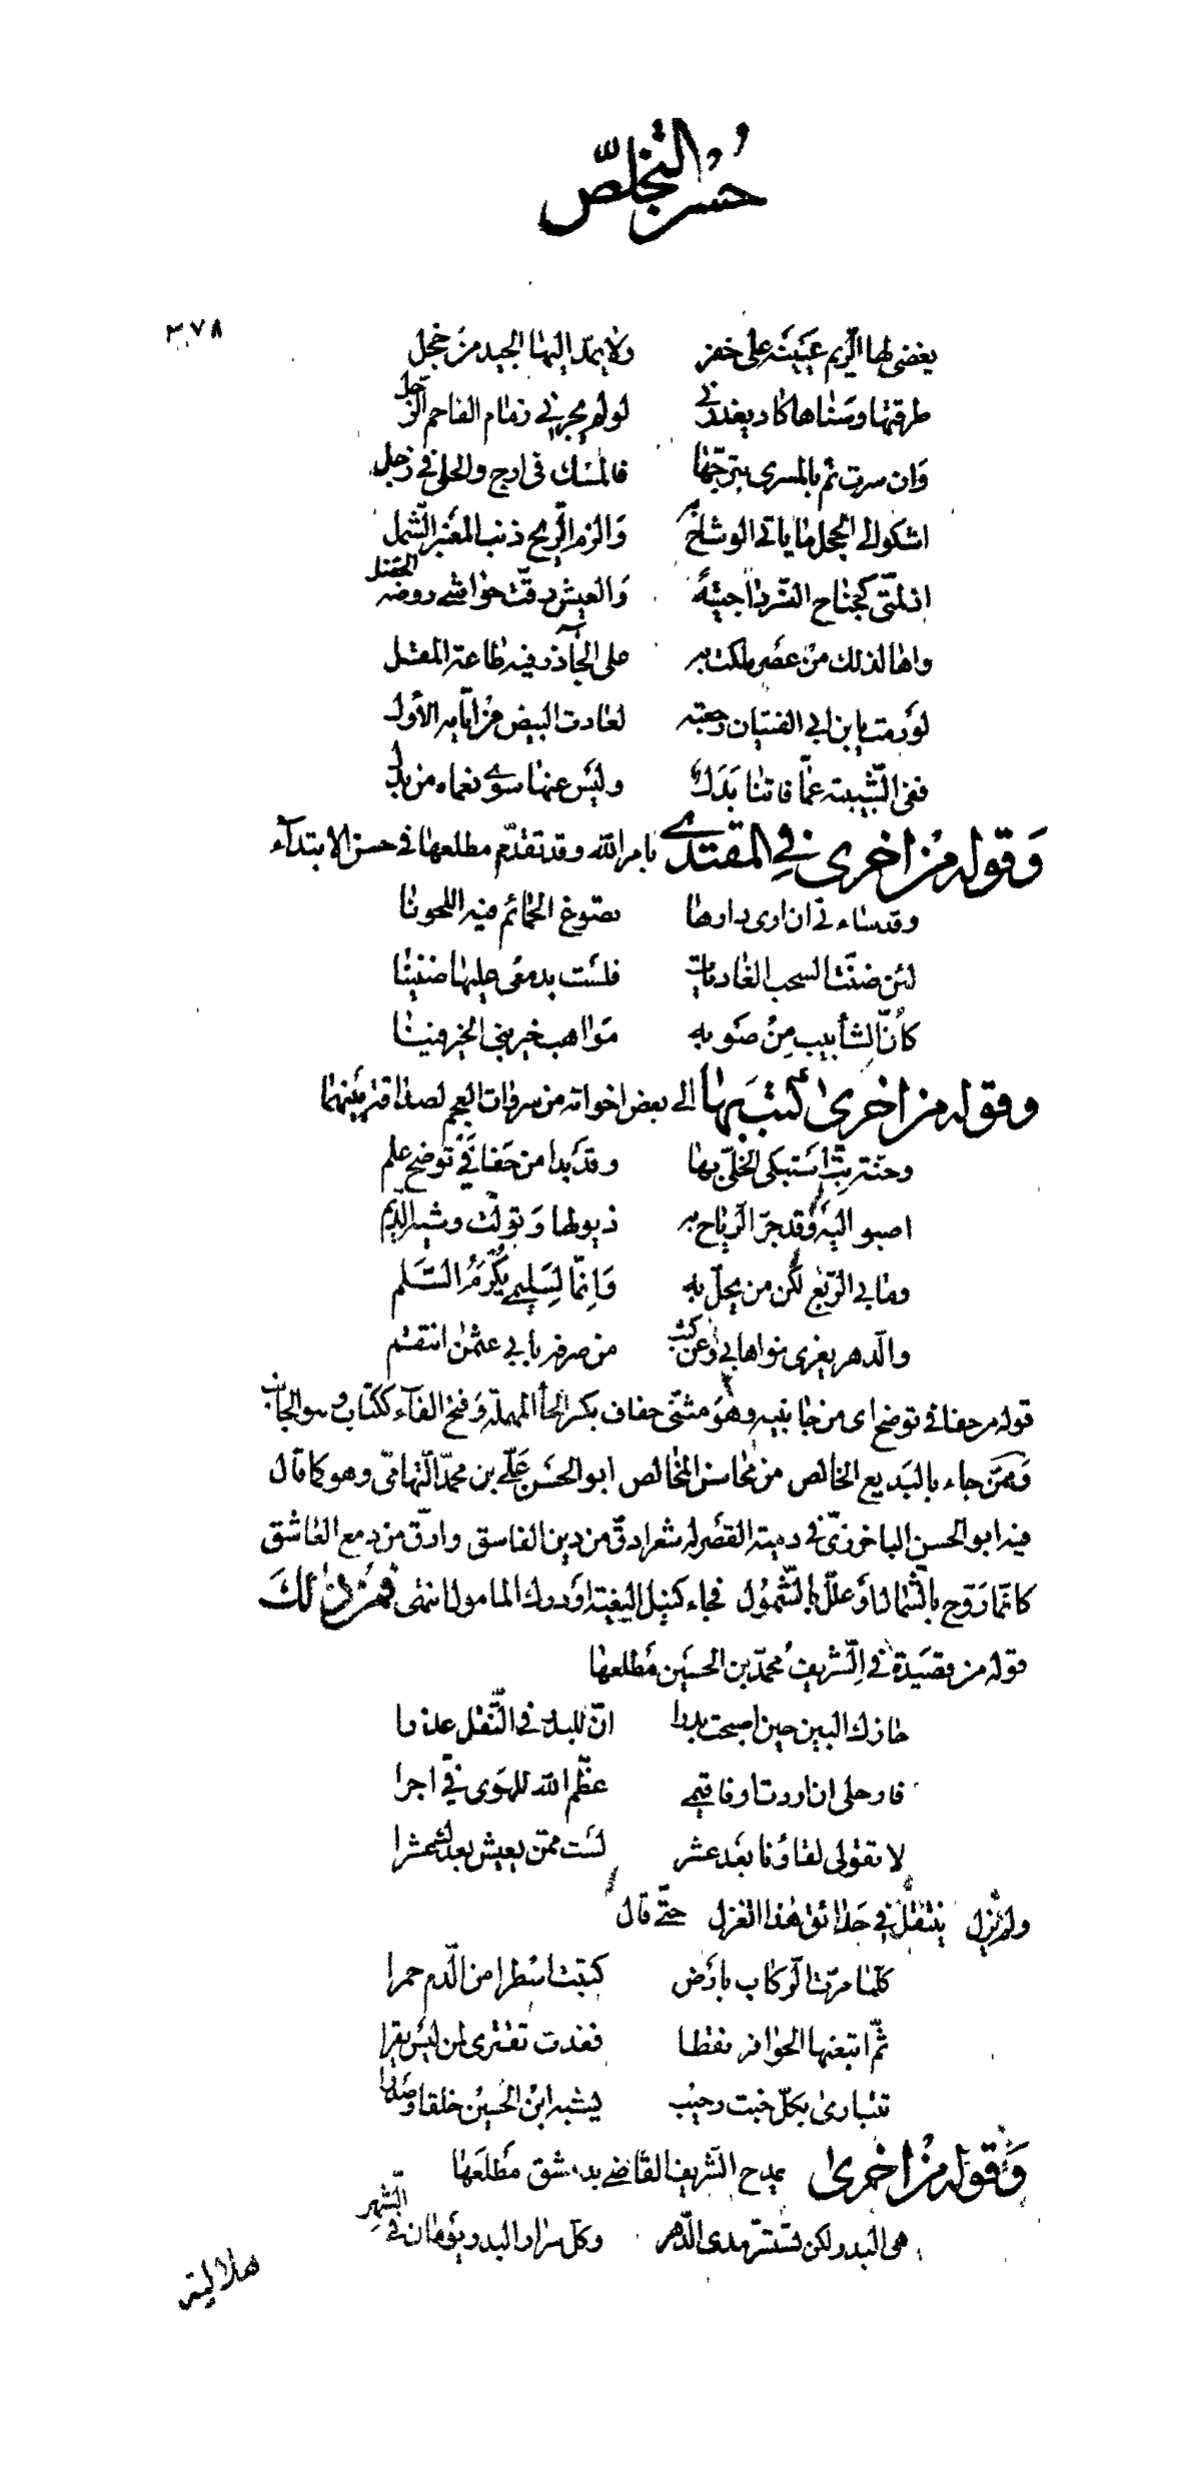 حُسْن التخلّص
٣٧٨
يغضى لها الريم عينيه على خفر ولا يمد اليها الجيد من خجل
طرقتها وسناها كاد يغدر بى لو لم يجرنى ذمام الفاحم الرجل
وان سرت نم بالمسرى تبرجها فالمسك فى ارج والحلى فى زجل
اشكو الى الحجل ما ياتى الوشاح به والزم الريح ذنب العنبر الشمل
اذ لمتى كجناح النسر داجية والعيش رقت حواشى روضه الخضل
واها لذلك من عصر ملكت به على الجآذر فيه طاعة المقل
لو رمت يا بن ابى الفتيان رجعته لعادت البيض من ايامه الأول
ففى الشبيبة عما فاتنا بَدَلٌ وليس عنها سوى نعماه من بدل
وَقوله من اخرى فِي المقتدى بامر الله وقد تقدّم مطلعها فى حسن الابتدآء
وقد ساءنى ان ارى دارها تصوغ الحمائم فيه اللحونا
لئن ضنّت السحب الغاديات فلست بدمعى عليها ضنينا
كأنّ الشأبيب مِنْ صَوبه مَواهب خير بنى الخير فينا
وقوله من اخرى كتب بها الى بعض اخوانه من سروات العجم لصداقة بينهما
وحنّة بتّ استبكى الخلىّ بها وقد بدا من حفافى توضح علم
اصبو اليه وقد جرّ الرياح به ذيولها وتولّت وشيه الديم
وما بى الربع لكن من يحلّ به وَانّما لسليمى يُكْرَمُ السَّلم
والدهر يغرى نواها بى وعن كثب من صرفه بابى عثمن انتقم
قوله من حفافى توضح اى من جانبيه وهو مثنّى حفاف بكسر الحاء المهملة وفتح الفآء ككتاب وهو الجانب
وَممّن جاء بالبَديع الخالص من محاسن المخالص ابو الحسَن عَلىّ بن محمّد التهامّى وهو كما قال
فيه ابو الحسن الباخرزىّ فى دمية القصر له شعر ادقّ من دين الفاسق وارقّ من دمع العاشق
كانّما روّح بالشمال او علّل بالشّمول فجاء كنيل البغية او درك المامول انتهى فمن ذلك
قوله من قصيَدة فى الشريف محمّد بن الحسَين مَطلعها
حازك البين حين اصبحت بدرا انّ للبدر فى التنقل عذرا
فارحلى ان اردت او فاقيمى عظّم الله للهوى فىّ اجرا
لا تقولى لقاؤنا بعد عشر لست ممّن يعيش بعدك عشرا
ولم يزل ينتقل فى حدائق هذا الغزل حتّى قال
كلّما مرّت الركاب بارض كتبت اسطرا من الدّم حمرا
ثمّ اتبعنها الحوافر نقطا فغدت تقترى لمن ليس يقرا
تتبارى بكلّ خبت رحيب يشبه ابن الحسين خلقا وصدرا
وَقوله من اخرى يمدح الشريف القاضى بدمشق مَطلعَها
هى البدر ولكن تستسرّ مدى الدّهر وكلّ سرار البدر يومان فى الشهر
هلالية